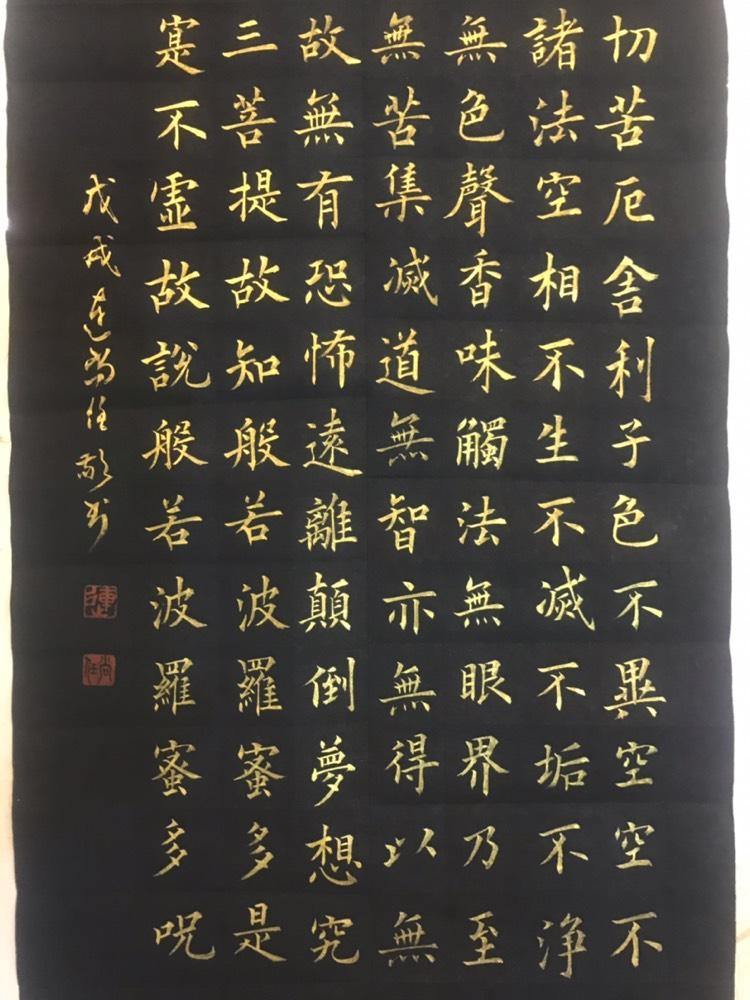 切苦厄舍利子色不異空空不
諸法空相不生不滅不垢不淨
無色聲香味觸法無眼界乃至
無苦集滅道無智亦無得以無
故無有恐怖遠離顛倒夢想究
三菩提故知般若波羅蜜多是
寔不虛故說般若波羅蜜多呪
戊戌連尚任敬書
連
尚任